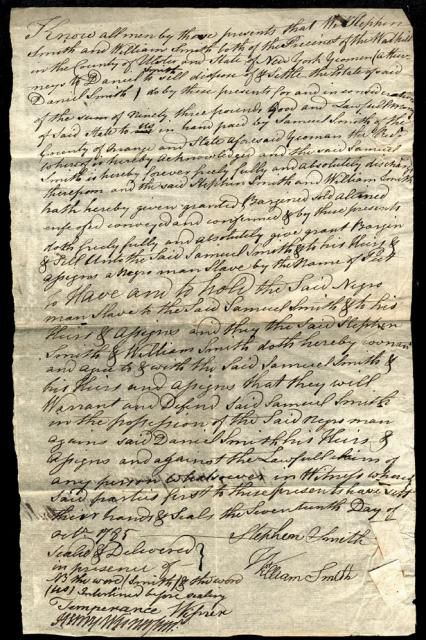 Know all men by these presents that We Stephen
Smith and William Smith both of the Precinct of the Wallkill
in the County of Ulster and State of New York Yeomen (attur
neys to Daniel Smith to Sell dispose of & Settle the Estate of said
Daniel Smith) do by these presents for and in consideration
of the sum of Ninety three pounds Good and Lawfull Money
of Said State to us in hand paid by Samuel Smith of the
County of Orange and State aforesaid Yeoman the Rect
whereof is hereby Acknowledged and the said Samuel
Smith is hereby forever freely fully and absolutely discharg
therefrom and the said Stephen Smith and William Smith
hath hereby given granted Bargined Sold aliened
enfeofed conveyed and confirmed & by these presents
doth freely fully and absolutely give grant Bargin
& Sell Unto the Said Samuel Smith & to his Heirs &
Assigns a Negro man Slave by the Name of
To Have and to hold the Said Negro
man Slave to the Said Samuel Smith & to his
Heirs & Assigns and they the Said Stephen
Smith & William Smith doth hereby covnant
and agree to & with the Said Samuel Smith &
his Heirs and Assigns that they will
Warrant and Defend Said Samuel Smith
in the Possession of the Said Negro man
against said Daniel Smith his Heirs &
Assigns and against the Lawfull claims of
any person whatsoever in Witness whereof
Said parties first to these presents have Sett
their hands & Seals the Seventeenth Day of
Octr 1785
Stephen Smith
Sealed & Delivered
in presence of
William Smith
NB the word (Smith) & the word
(us) Interlined before sealing
Temperance Wisner
Henry Wisner